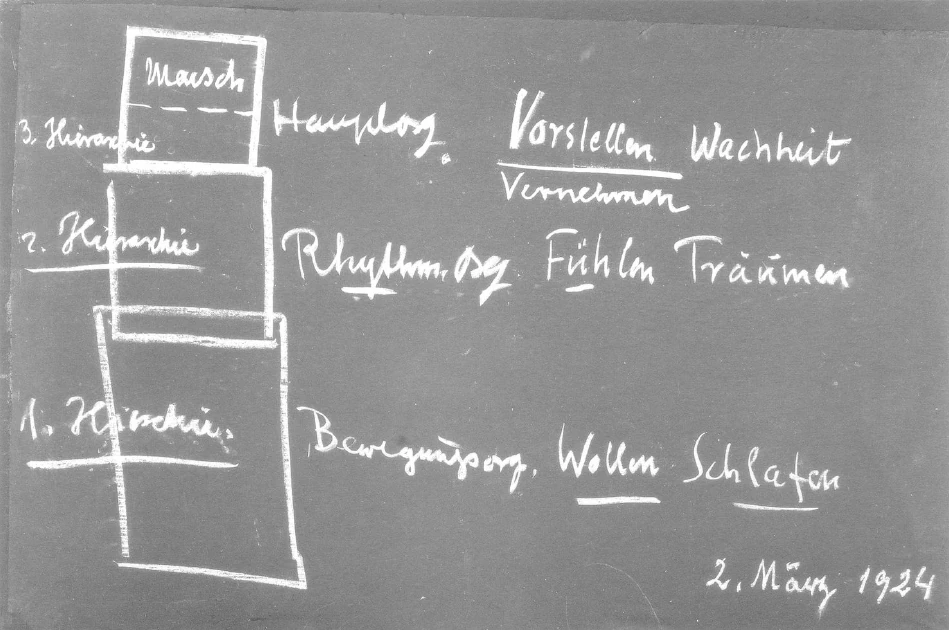 Mensch
3. Hierarchie Hauptorg. Vorstellen Wachheit
Vernehmen
2. Hierarchie Rhythm. Org. Fühlen Träumen
1. Hierarchie. Bewegungsorg. Wollen Schlafen
2. März 1924